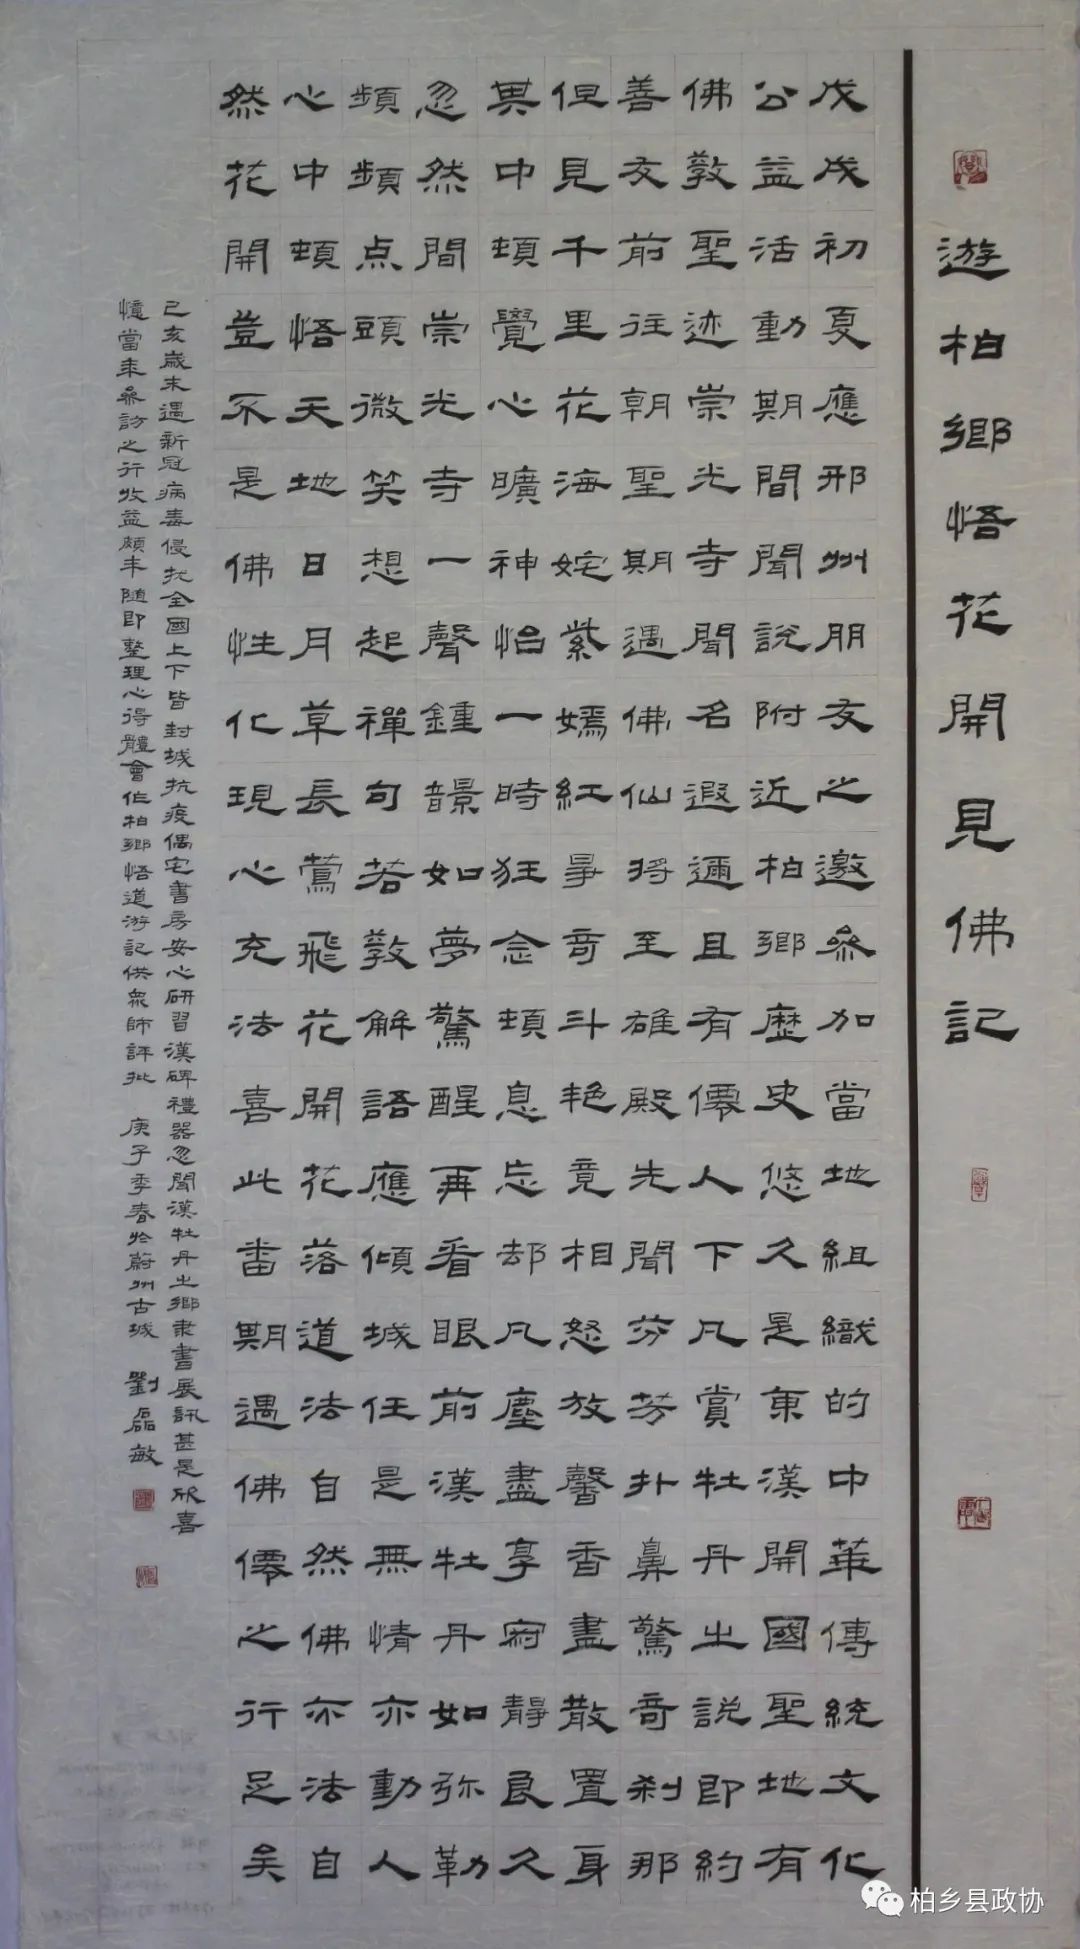 遊柏鄉悟花開見佛記
戊戌初夏應邢州朋友之邀參加當地組織的中華傳統文化
公益活動期間聞說附近柏鄉歷史悠久是東漢開國聖地有
佛教聖迹崇光寺聞名遐邇且有僊人下凡賞牡丹之說即約
善友前往朝聖期遇佛仙將至雄殿先聞芬芳扑鼻驚奇刹那
但見千里花海姹紫嫣紅爭奇斗艳竟相怒放馨香盡散置身
其中頓覺心曠神怡一時狂念頓息忘却凡塵盡享寂靜良久
忽然間崇光寺一聲鍾韻如夢驚醒再看眼前漢牡丹如弥勒
頻頻点頭微笑想起禪句若教解語應傾城任是無情亦動人
心中頓悟天地日月草長鶯飛花開花落道法自然佛亦法自
然花開豈不是佛性化現心充法喜此番期遇佛僊之行足矣
己亥歲末遇新冠病毒侵扰全國上下皆封城抗疫偶宅書房安心研習漢碑禮器忽聞漢牡丹之鄉隶書展訊甚是欣喜
憶當年參訪之行收益頗丰随即整理心得體會作柏鄉悟道游記供衆師評批 庚子季春於蔚州古城 劉磊敏
柏乡县政协